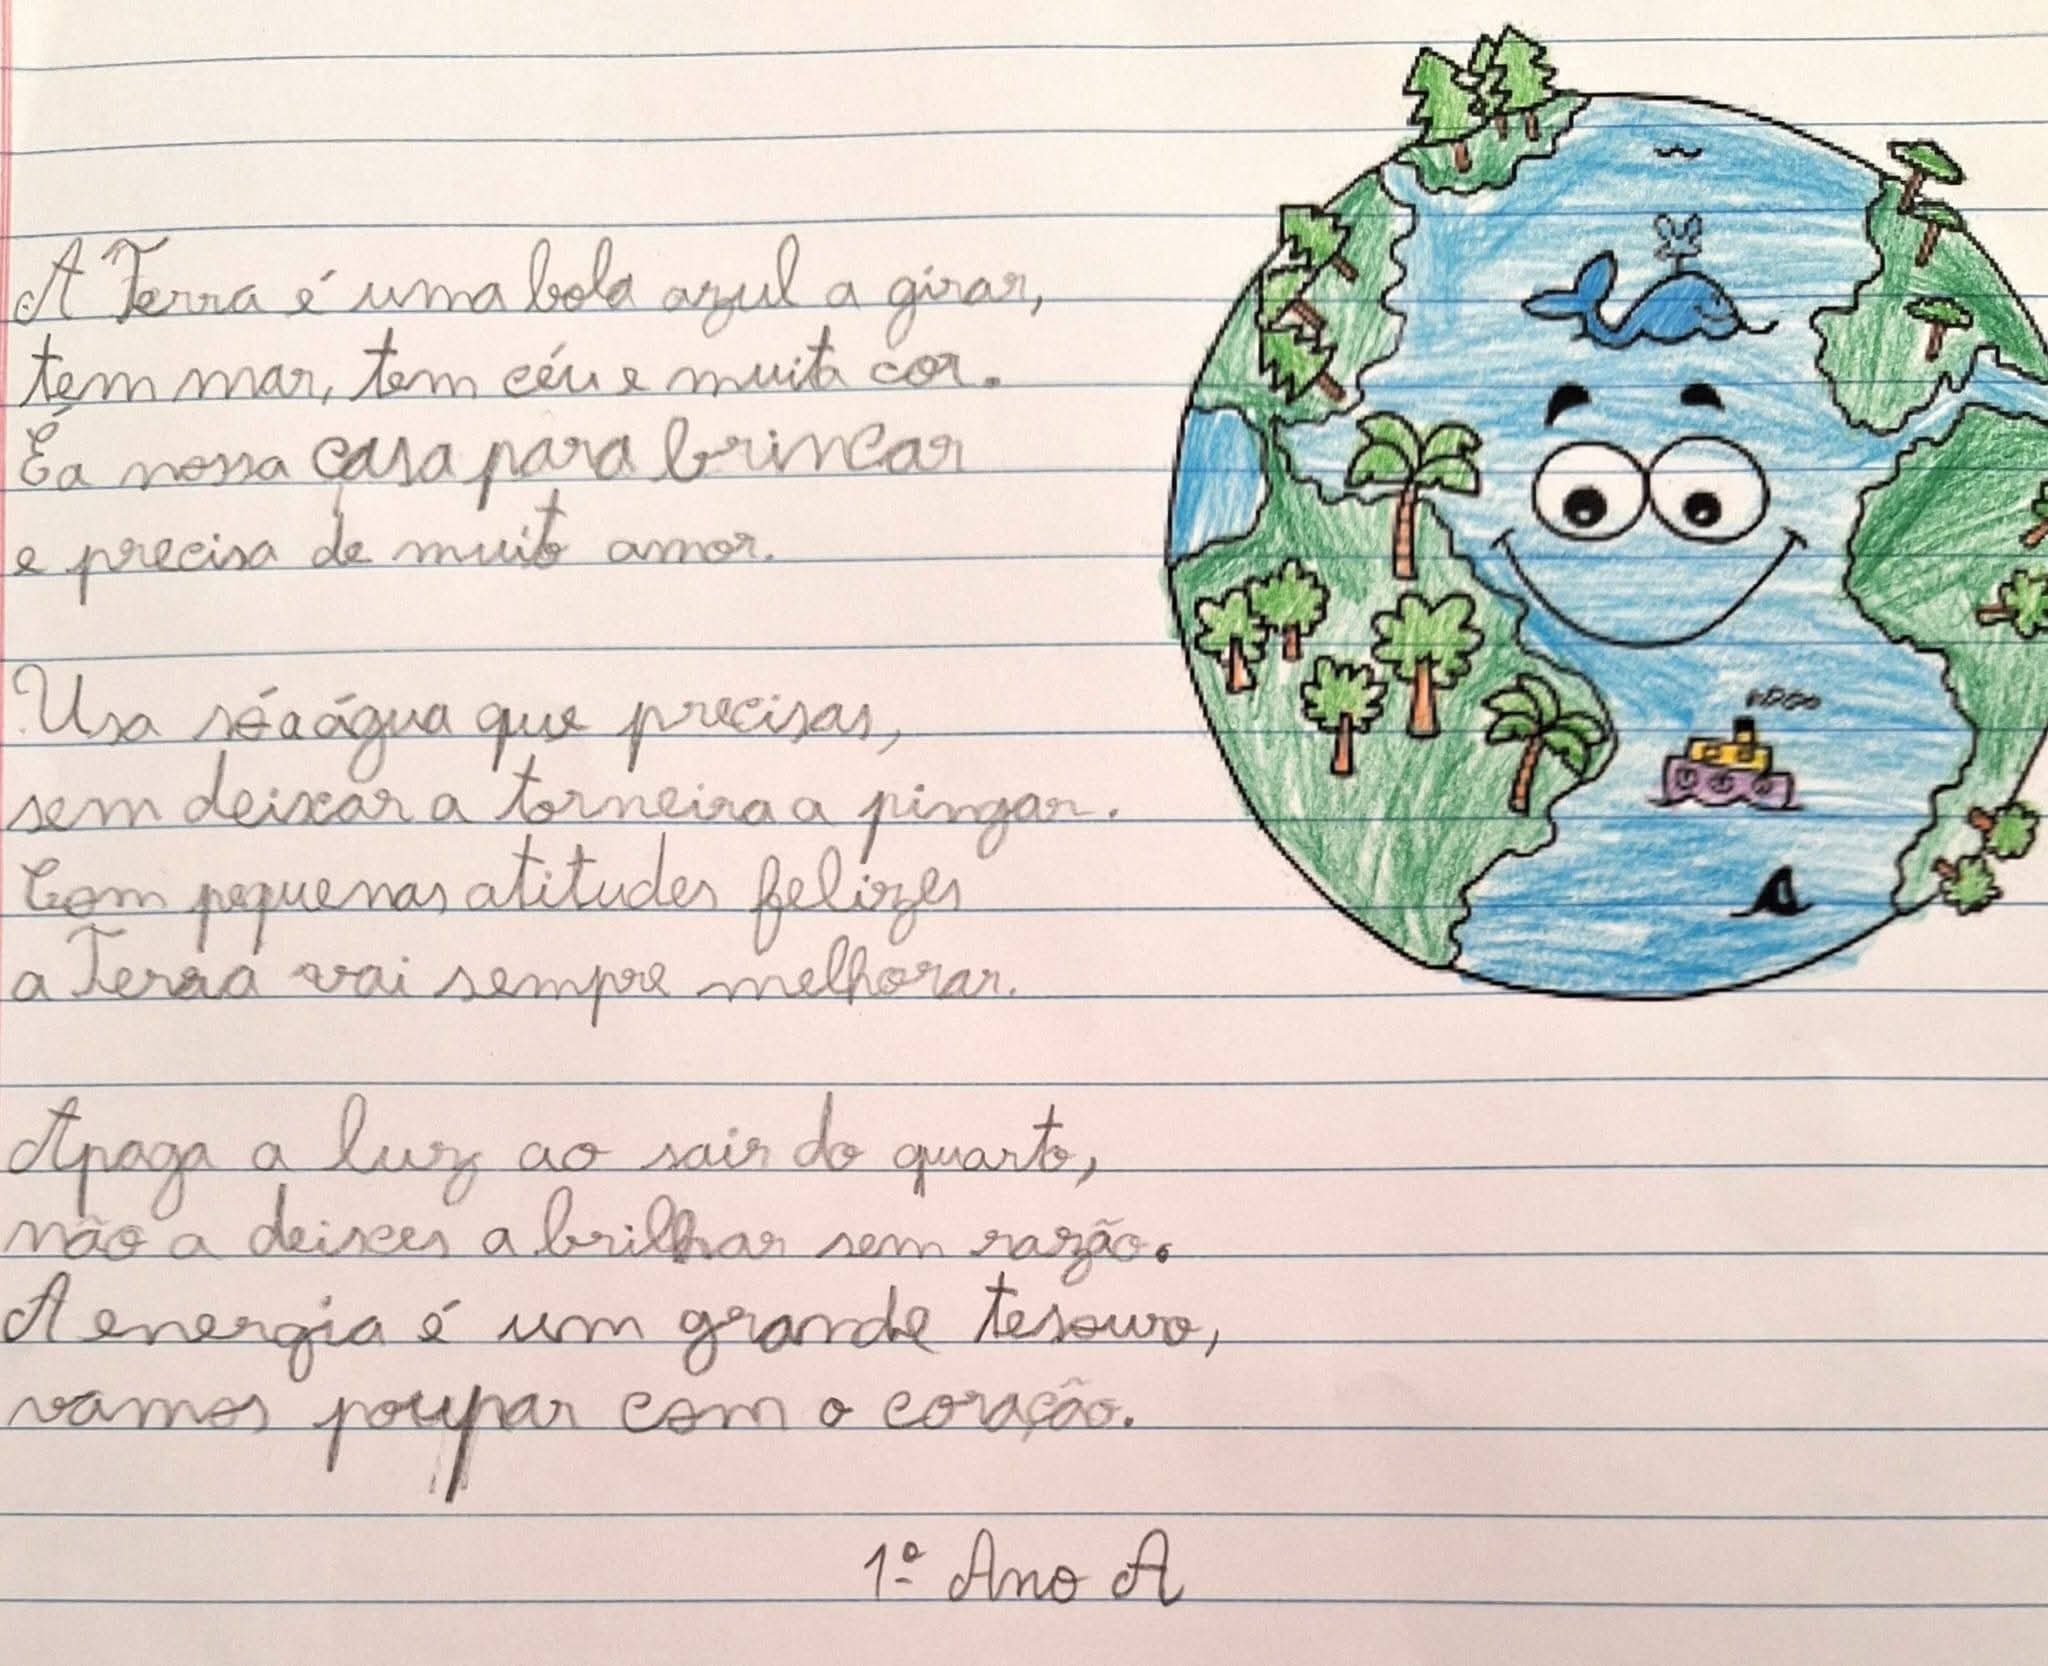 A Terra é uma bola azul a girar,
tem mar, tem céu e muita cor.
É a nossa casa para brincar
e precisa de muito amor.
Usa só a água que precisas,
sem deixar a torneira a pingar.
Com pequenas atitudes felizes
a Terra vai sempre melhorar.
Apaga a luz ao sair do quarto,
não a deixes a brilhar sem razão.
A energia é um grande tesouro,
vamos poupar com o coração.
1.º Ano A